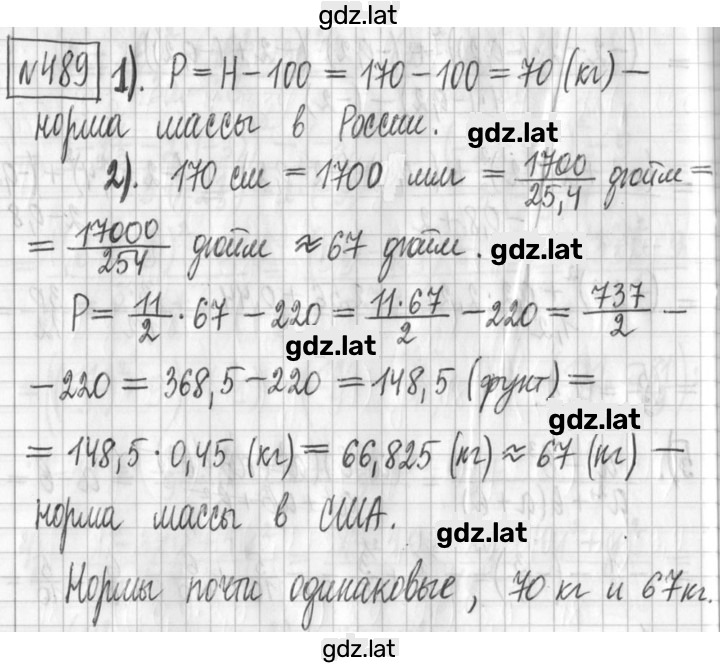 gdz.lat
№489 1). P = H - 100 = 170 - 100 = 70 (кг) -
норма массы в России. gdz.lat
2). 170 см = 1700 мм = 1700/25,4 дюйм =
= 17000/254 дюйм ≈ 67 дюйм. gdz.lat
P = 11/2 · 67 - 220 = 11·67/2 - 220 = 737/2 -
gdz.lat
- 220 = 368,5 - 220 = 148,5 (фунт) =
gdz.lat
= 148,5 · 0,45 (кг) = 66,825 (кг) ≈ 67 (кг) -
норма массы в США. gdz.lat
Нормы почти одинаковые, 70 кг и 67 кг.
gdz.lat